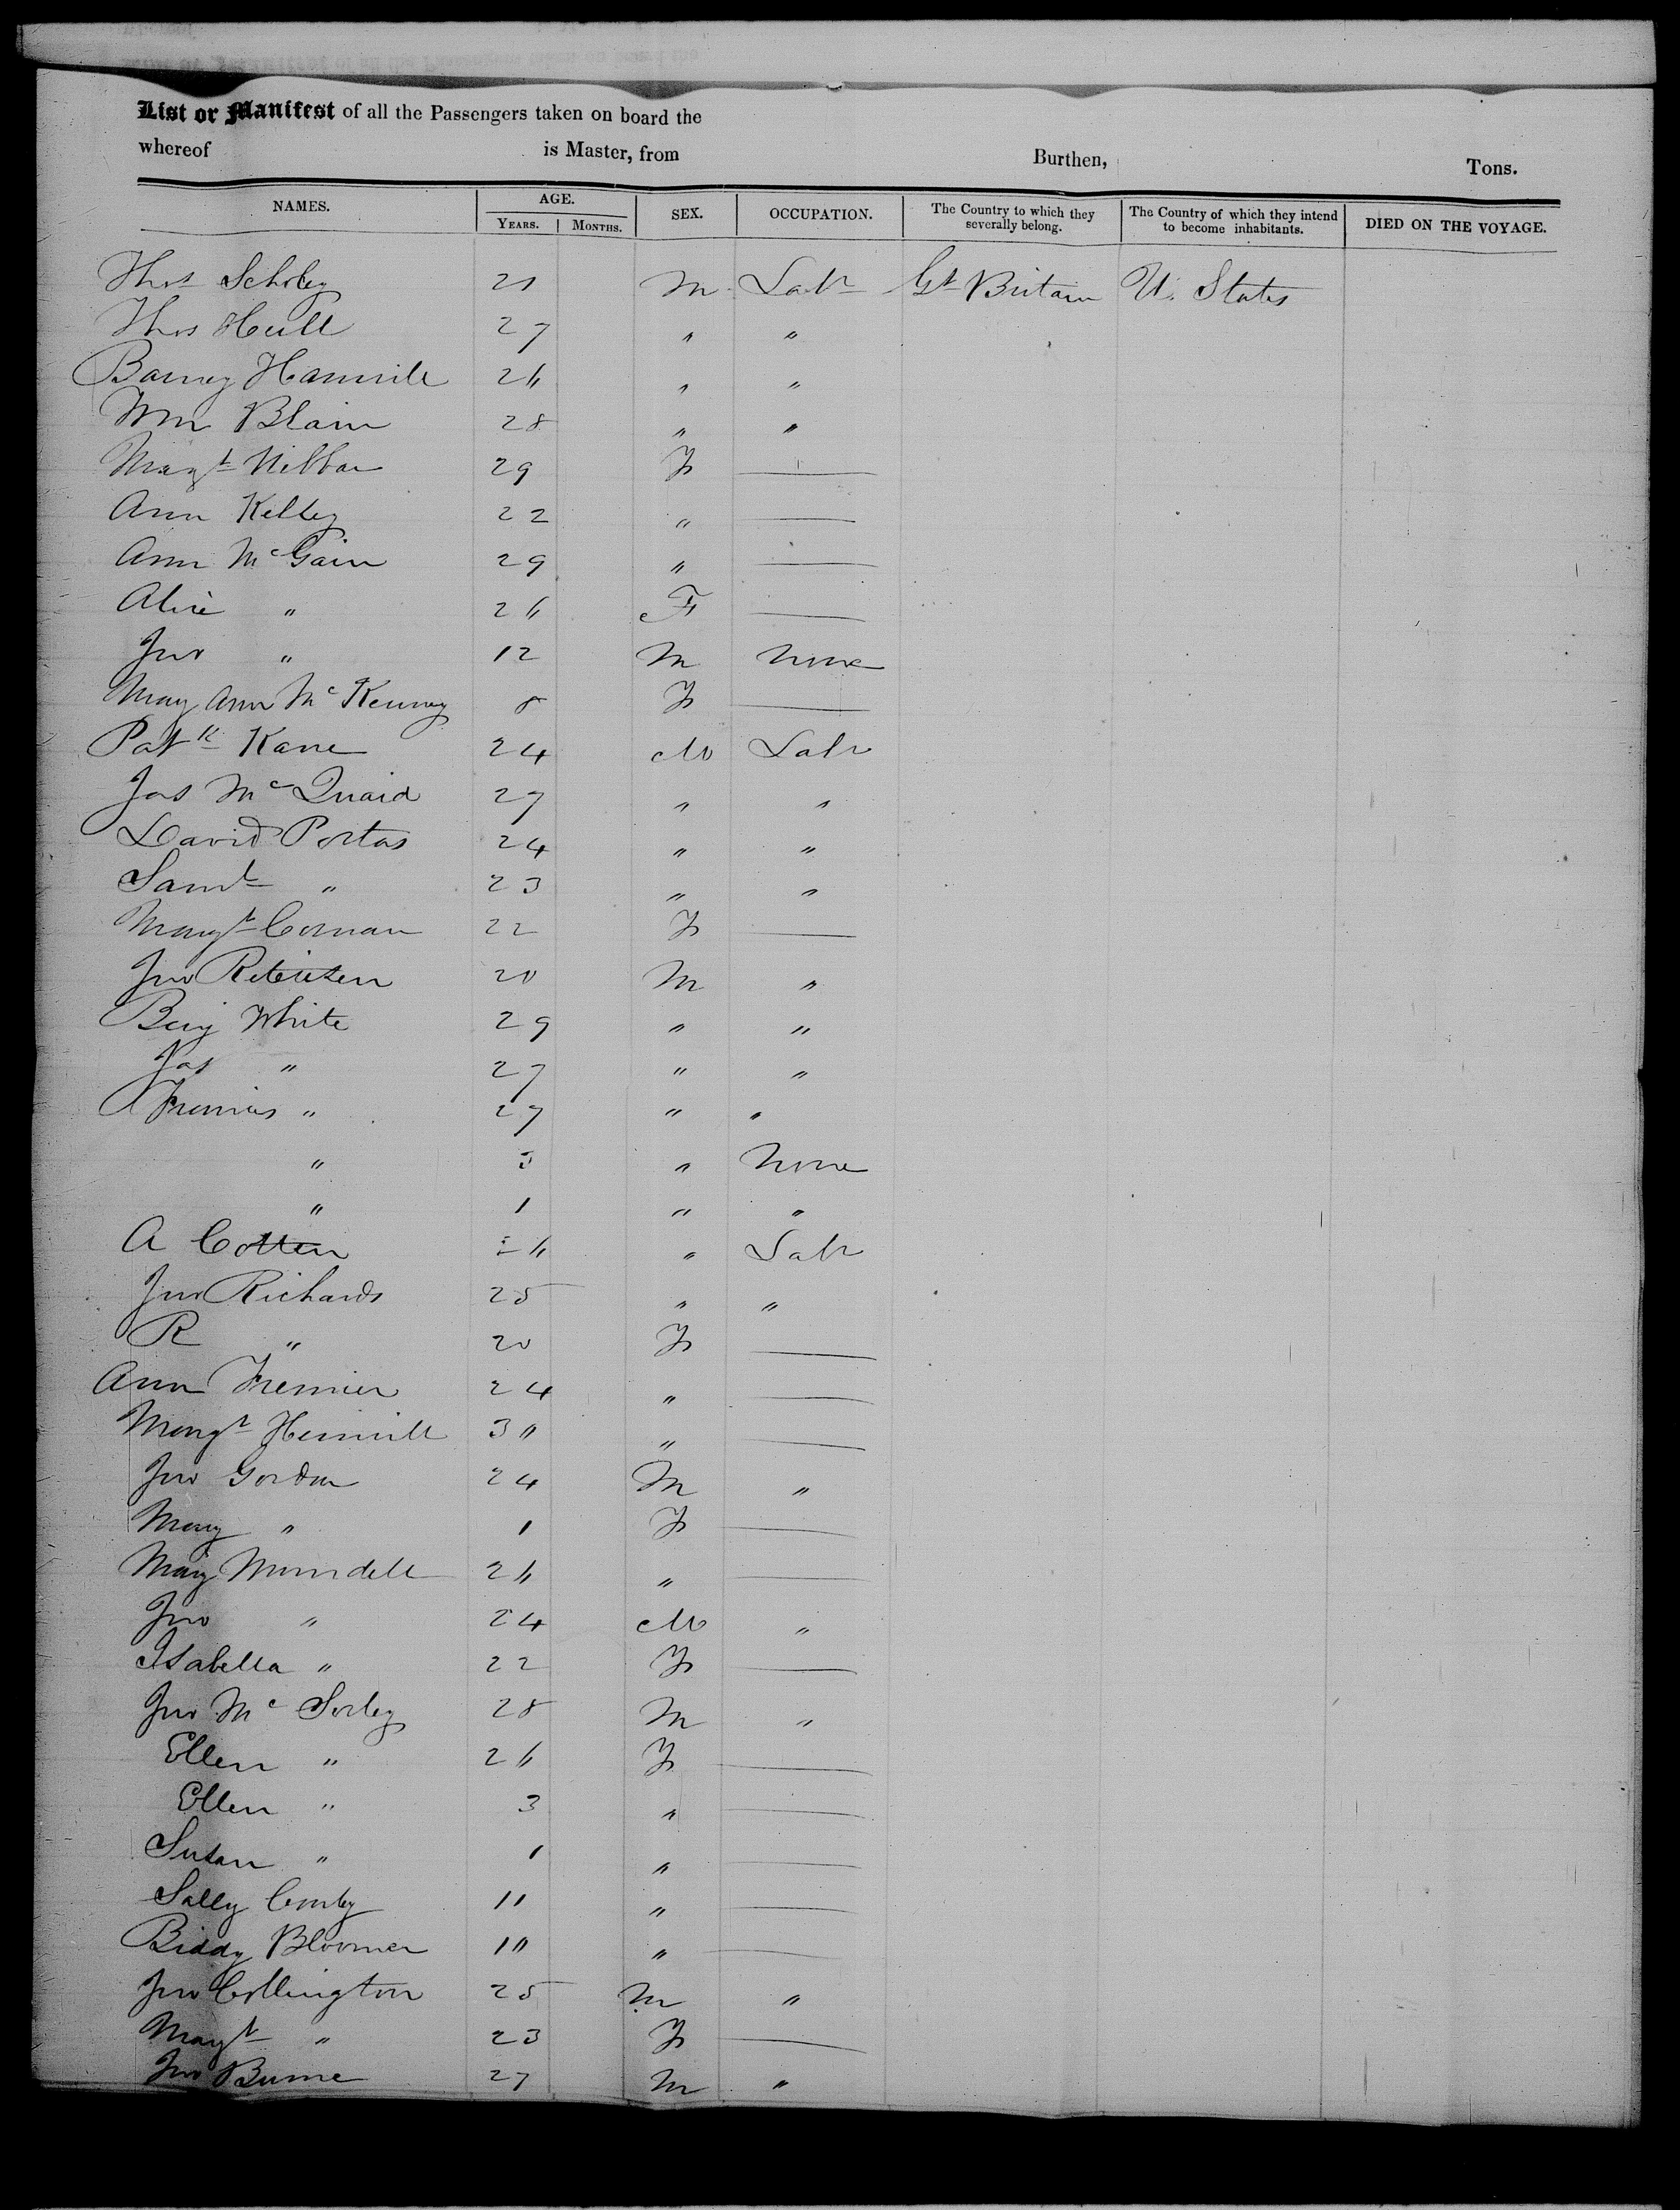 List or Manifest of all the Passengers taken on board the
whereof is Master, from Burthen, Tons.
NAMES. AGE. SEX. OCCUPATION. The Country to which they severally belong. The Country of which they intend to become inhabitants. DIED ON THE VOYAGE.
YEARS. MONTHS.
Thos Schöley 21 M Labr Gt Britain U. States
Thos Hull 27 " "
Barney Hammill 26 " "
Wm Blain 28 " "
Margt 29 F —
Ann Kelley 22 " —
Ann McGain 29 " —
Alice " 26 F —
Jno " 12 M None
Mary Ann McKenney 8 F —
Patk Kane 24 M Labr
Jas McQuaid 27 " "
David Portas 24 " "
Saml " 23 " "
Margt Cornan 22 F —
Jno 20 M "
Benj White 29 " "
Jas " 27 " "
" 27 " "
" 3 " None
" 1 " "
A Cotten 26 " Labr
Jno Richards 25 " "
R " 20 F —
Ann 24 " —
Margt Hemmill 30 " —
Jno Gordon 24 M "
Mary " 1 F —
Mary Mundell 26 " —
Jno " 24 M "
Isabella " 22 F —
Jno McSorley 28 M "
Ellen " 26 F —
Ellen " 3 " —
Susan " 1 " —
Sally 11 " —
Biddy Bloomer 10 " —
Jno Collington 25 M "
Margt " 23 F —
Jno Burne 27 M "